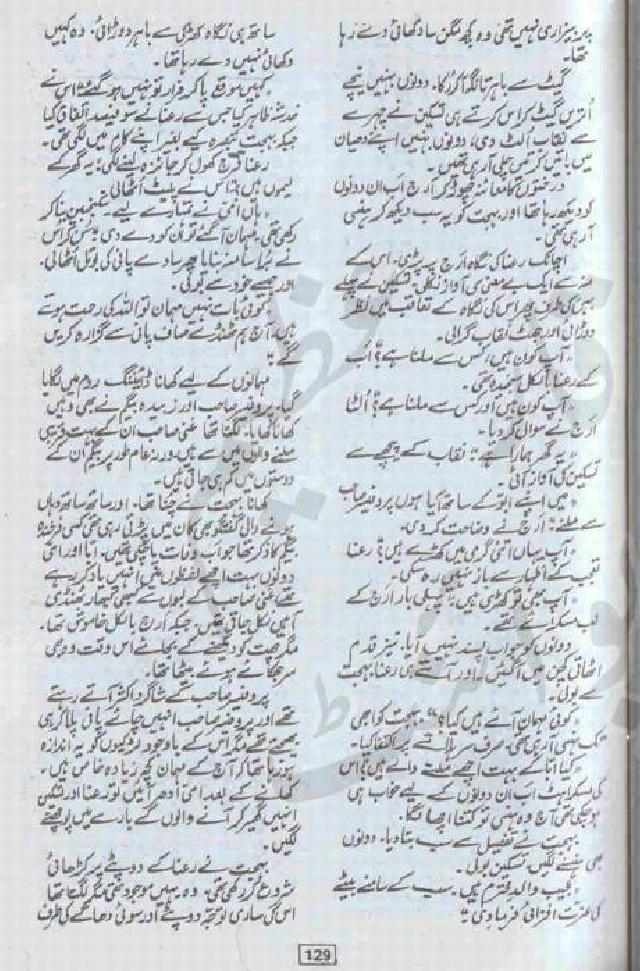 پر بیزاری نہیں تھی وہ کچھ مگن سا دکھائی دے رہا
تھا۔
گیٹ سے باہر تانگا آ کر رکا۔ دونوں بہنیں نیچے
اتریں گیٹ کراس کرتے ہی تسکین نے چہرے
سے نقاب الٹ دی، دونوں بہنیں اپنے دھیان
میں باتیں کرتی چلی آ رہی تھیں۔
درختوں کا معائنہ چھوڑ کر آرج اب ان دونوں
کو دیکھ رہا تھا اور بہجت کو یہ سب دیکھ کر ہنسی
آ رہی تھی۔
اچانک رعنا کی نگاہ آرج پر پڑی۔ اس کے
منہ سے ایک بے معنی سی آواز نکلی۔ تسکین نے پہلے
بہن کی طرف پھر اس کی نگاہ کے تعاقب میں نظر
دوڑائی اور جھٹ نقاب گرالی۔
"آپ کون ہیں، کس سے ملنا ہے؟" اب
کے رعنا بالکل سنجیدہ تھی۔
"آپ کون ہیں اور کس سے ملنا ہے؟" الٹا
آرج نے سوال کر دیا۔
"یہ گھر ہمارا ہے" نقاب کے پیچھے سے
تسکین کی آواز آئی۔
"میں اپنے ابو کے ساتھ آیا ہوں پروفیسر صاحب
سے ملنے" آرج نے وضاحت کر دی۔
"آپ یہاں اتنی گرمی میں کھڑے ہیں؟" رعنا
تعجب کے اظہار سے باز نہیں رہ سکی۔
"آپ بھی تو کھڑی ہیں" پہلی بار آرج کے
لب مسکرائے تھے۔
دونوں کو جواب پسند نہیں آیا۔ تیز قدم
اٹھاتی کچن میں آ گئیں۔ اور آتے ہی رعنا بہجت
سے بولی۔
"کوئی مہمان آئے ہیں کیا؟" بہجت کو ابھی
تک ہنسی آ رہی تھی صرف سر ہلانے پر اکتفا کیا۔
"کیا ابا کے بہت اچھے ملنے والے ہیں؟" اس
کی مسکراہٹ اب ان دونوں کے لیے خواب ہی
ہو چکی تھی آج وہ ہنسی تو کتنا اچھا لگا۔
بہجت نے تفصیل سے سب بتا دیا۔ دونوں
بھی ہنسنے لگیں۔ تسکین بولی۔
"عجیب والد محترم ہیں۔ سب کے سامنے بیٹے
کی عزت افزائی فرما دی"
ساتھ ہی نگاہ کھڑکی سے باہر دوڑائی۔ وہ کہیں
دکھائی نہیں دے رہا تھا۔
"کہیں موقع پا کر فرار تو نہیں ہو گئے" اس نے
خدشہ ظاہر کیا جس سے رعنا نے سو فیصد اتفاق کیا
جبکہ بہجت تبصرہ کیے بغیر اپنے کام میں لگی تھی۔
رعنا فرج کھول کر جائزہ لینے لگی "یہ گھر کے
لیموں ہیں ناں" اس نے پلیٹ اٹھائی
"ہاں امی نے تمہارے لیے سکنجبین بنا کر
رکھی تھی، مہمان آ گئے تو ان کو دے دی" بہجت
نے برا سا منہ بنایا پھر سادے پانی کی بوتل اٹھائی
اور جیسے خود سے بولی۔
"کوئی بات نہیں مہمان تو اللہ کی رحمت ہوتے
ہیں، آج ہم ٹھنڈے صاف پانی سے گزارہ کریں
گے"
مہمانوں کے لیے کھانا ڈائیننگ روم میں لگایا
گیا۔ پروفیسر صاحب اور زبیدہ بیگم نے بھی وہیں
کھانا کھایا۔ لگتا تھا غنی صاحب ان کے بہت قریبی
ملنے والوں میں سے ہیں ورنہ عام طور پر بیگم ان کے
دوستوں میں کم ہی جاتی ہیں۔
کھانا بہجت نے چنا تھا۔ اور ساتھ ساتھ وہاں
ہونے والی گفتگو بھی کان میں پڑتی رہی تھی کسی فرخندہ
بیگم کا ذکر تھا جو اب وفات پا چکی تھیں۔ ابا اور امی
دونوں بہت اچھے لفظوں میں انہیں یاد کر رہے
تھے، غنی صاحب کے لبوں سے کبھی کبھار ٹھنڈی
آہ بھی نکل جاتی تھی۔ جبکہ آرج بالکل خاموش تھا۔
مگر چھت کو دیکھنے کے بجائے اس وقت وہ بھی
سر جھکائے ہوئے بیٹھا تھا۔
پروفیسر صاحب کے شاگرد اکثر آتے رہتے
تھے اور پروفیسر صاحب انہیں چائے پانی پلا کر ہی
بھیجتے تھے مگر اس کے باوجود لڑکیوں کو یہ اندازہ
ہو رہا تھا کہ آج کے مہمان کچھ زیادہ خاص ہیں۔
کھانے کے بعد امی ادھر آئیں تو رعنا اور تسکین
انہیں گھیر کر آنے والوں کے بارے میں پوچھنے
لگیں۔
بہجت نے رعنا کے دوپٹے پر کڑھائی
شروع کر رکھی تھی۔ وہ یہیں موجود تھی مگر لگتا تھا
اس کی ساری توجہ دوپٹے اور سوئی دھاگے کی طرف
129